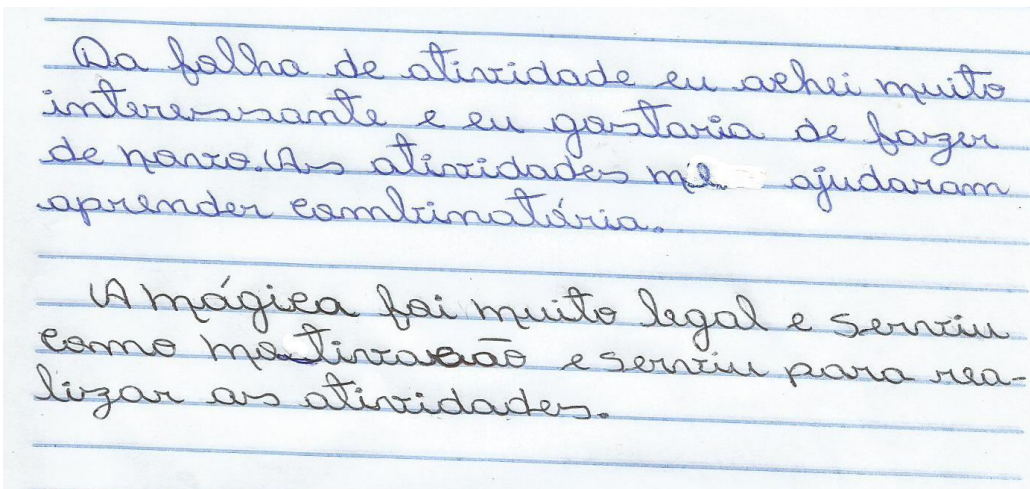 Da folha de atividade eu achei muito
interessante e eu gostaria de fazer
de novo. As atividades me ajudaram
aprender combinatória.
A mágica foi muito legal e serviu
como motivacão e serviu para rea-
lizar as atividades.